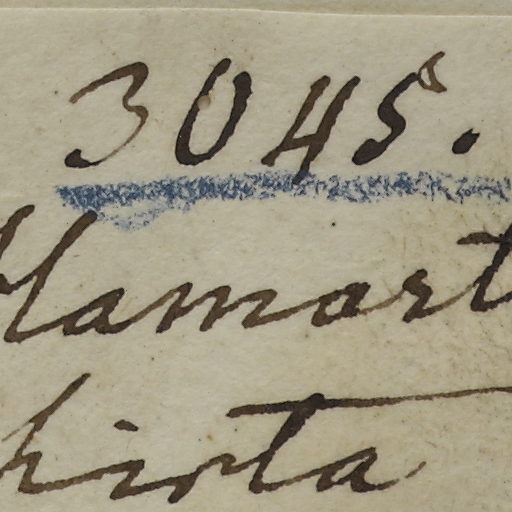 3045.
Hamart
hirta